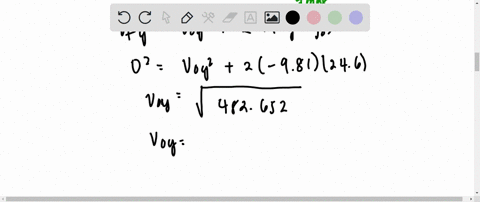 0² = Voy² + 2(-9.81)(24.6)
Voy = √482.652
Voy =